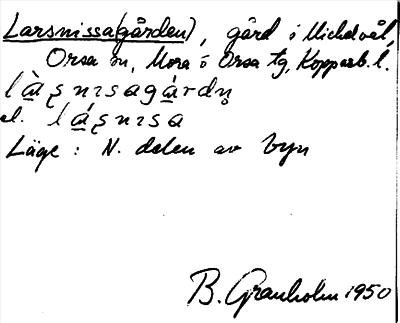 Larsnissa(gården), gård i Michelvål,
Orsa sn, Mora o Orsa tg, Kopparb. l.
el.
Läge : N. delen av byn
B. Granholm 1950